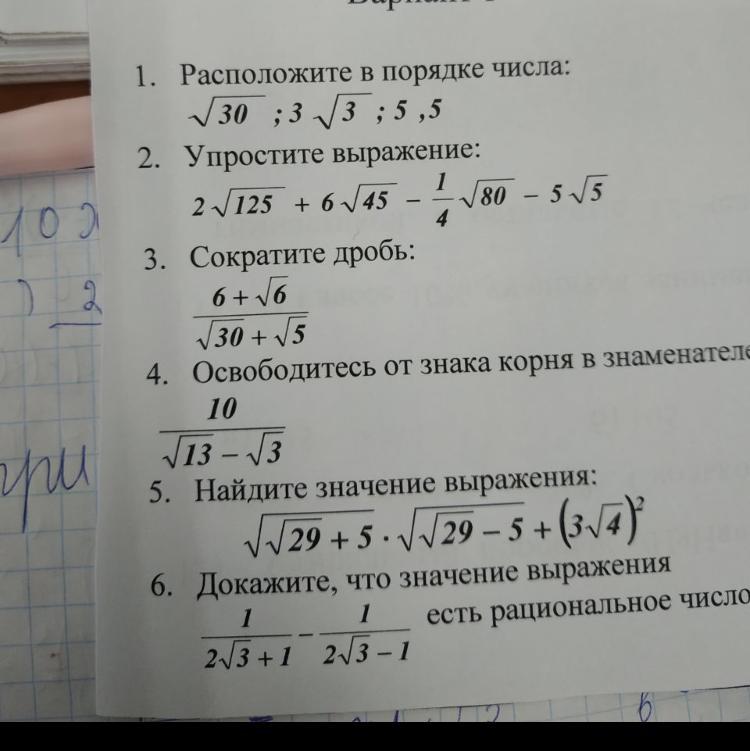 1. Расположите в порядке числа:
√30 ; 3 √3 ; 5 ,5
2. Упростите выражение:
2√125 + 6√45 − 1/4 √80 − 5√5
3. Сократите дробь:
6 + √6
√30 + √5
4. Освободитесь от знака корня в знаменателе
10
√13 − √3
5. Найдите значение выражения:
√(√29 + 5) · √(√29 − 5) + (3√4)²
6. Докажите, что значение выражения
1/(2√3 + 1) − 1/(2√3 − 1) есть рациональное число
10
) 2
при